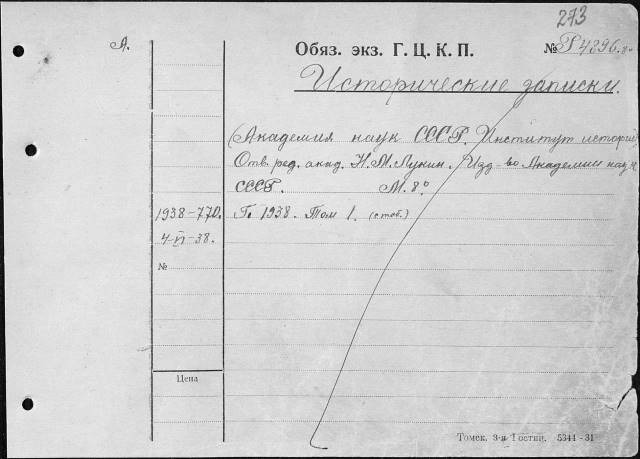 273
А.
Обяз. экз. Г. Ц. К. П. № Р4296
Исторические записки.
(Академия наук СССР. Институт истории)
Отв. ред. акад. Н. М. Лукин. Изд-во Академии наук
СССР. М. 8°
1938-770. Г. 1938. Том 1. (стоб.)
4-VI-38.
№
Цена
Томск. 3-я Гостип. 5344-31